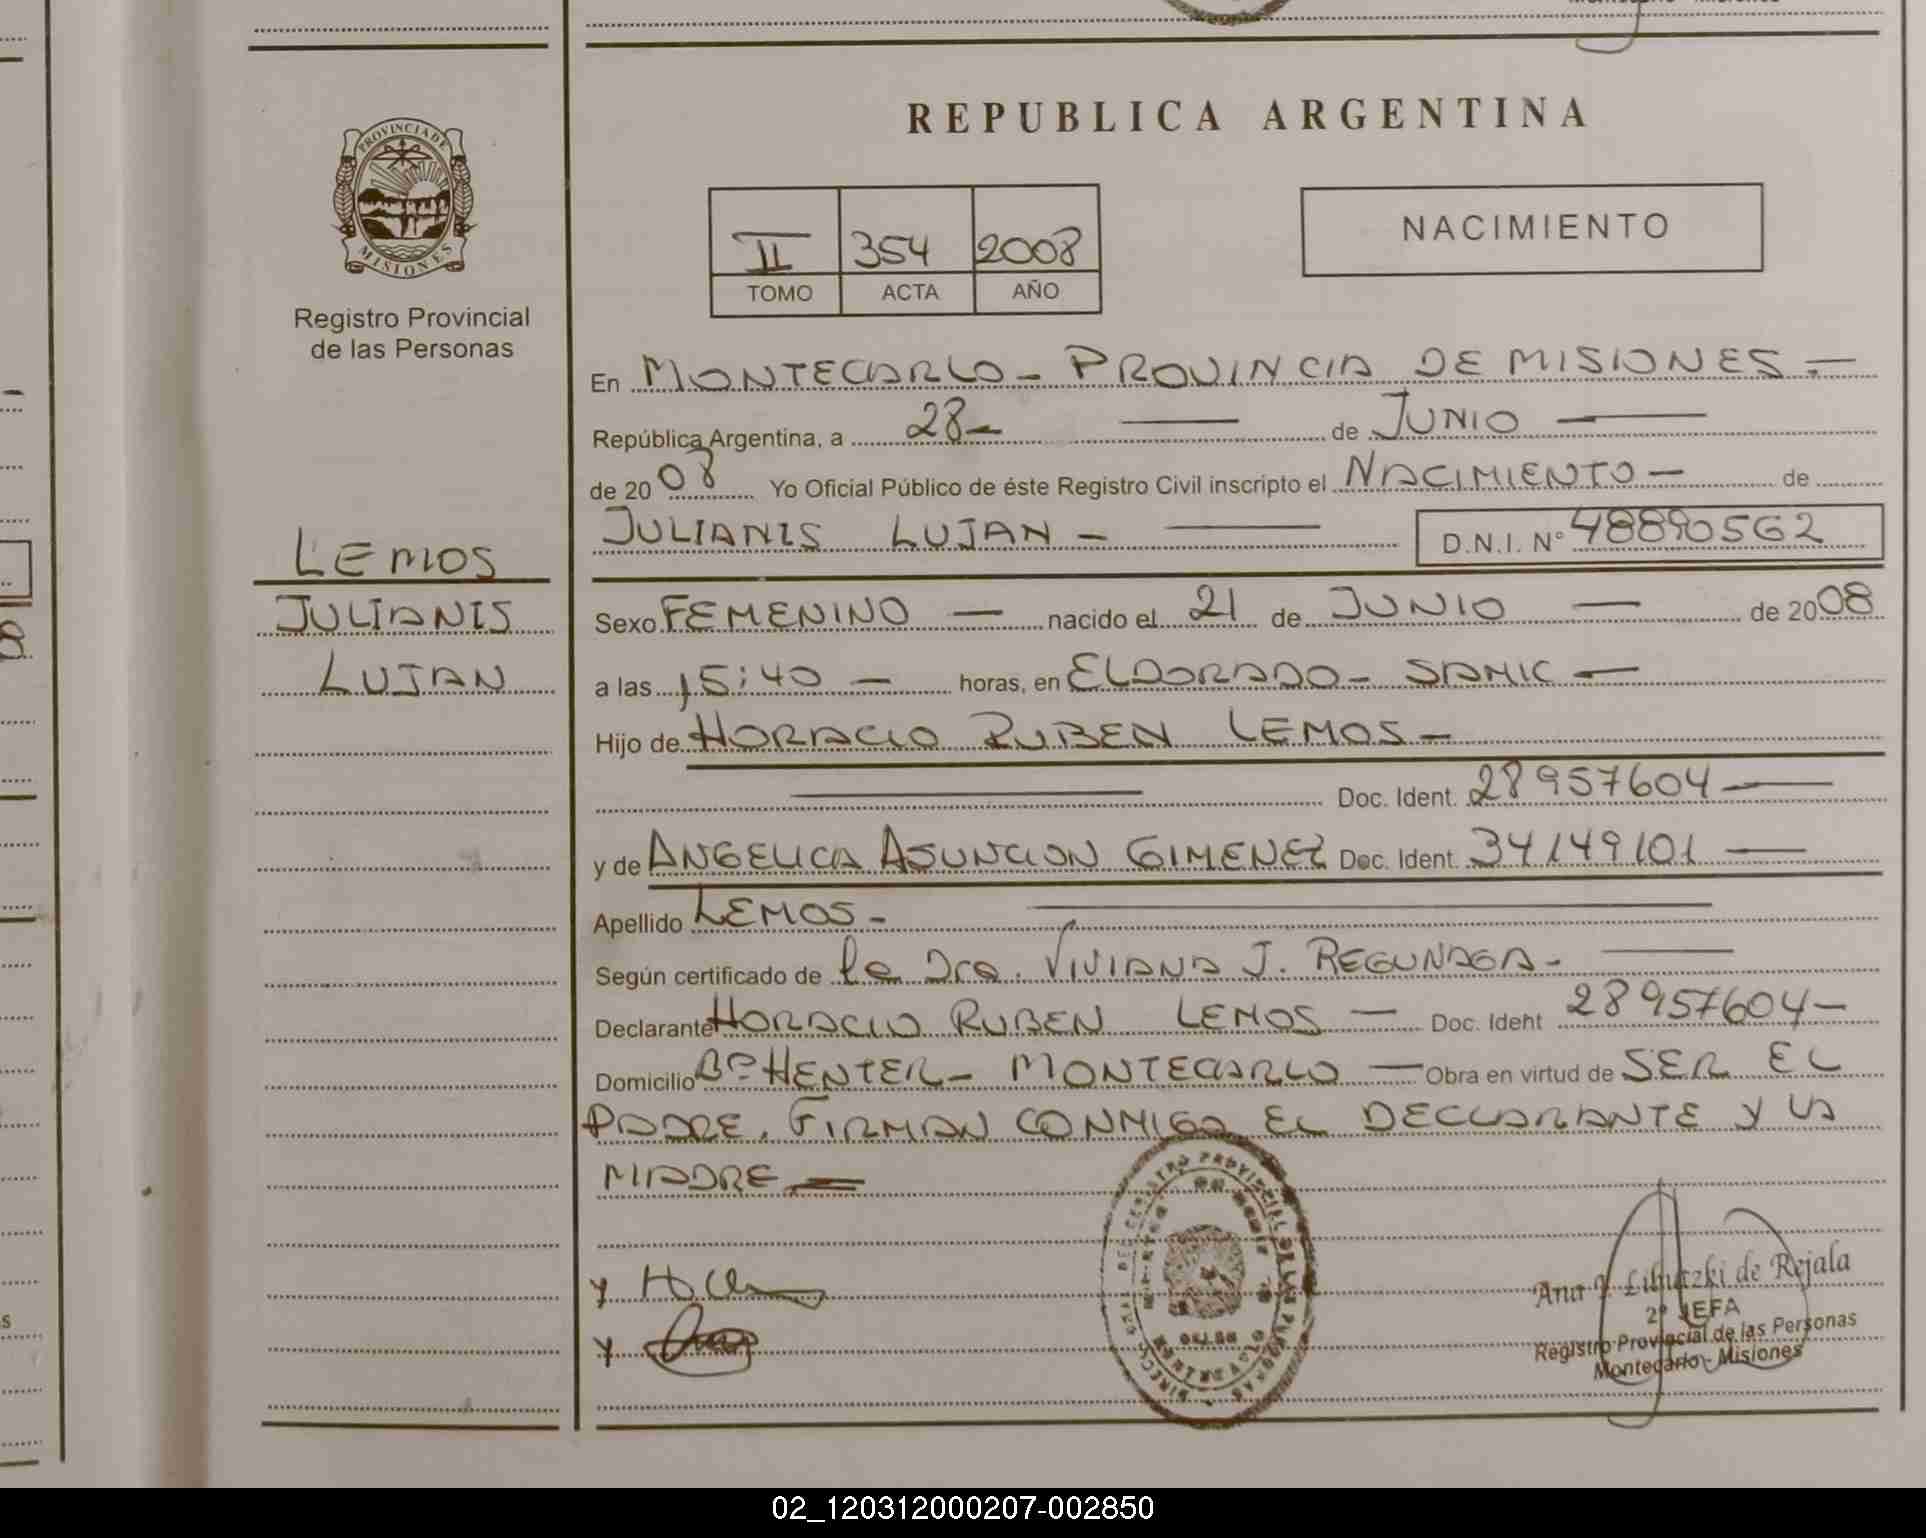 REPUBLICA ARGENTINA
PROVINCIA DE
MISIONES
Registro Provincial
de las Personas
II 354 2008
TOMO ACTA AÑO
NACIMIENTO
En MONTECARLO - PROVINCIA DE MISIONES. —
República Argentina, a 28 - — de JUNIO —
de 20 08 Yo Oficial Público de éste Registro Civil inscripto el NACIMIENTO — de
JULIANIS LUJAN - — D.N.I. N° 48890562
LEMOS
JULIANIS
LUJAN
Sexo FEMENINO — nacido el 21 de JUNIO — de 2008
a las 15:40 — horas, en ELDORADO - SAMIC —
Hijo de HORACIO RUBEN LEMOS -
— Doc. Ident. 28957604 —
y de ANGELICA ASUNCION GIMENEZ Doc. Ident. 34149101 —
Apellido LEMOS - —
Según certificado de la Dra. VIVIANA J. REGUNAGA - —
Declarante HORACIO RUBEN LEMOS — Doc. Ident 28957604 —
Domicilio B° HENTER - MONTECARLO — Obra en virtud de SER EL
PADRE. FIRMAN CONMIGO EL DECLARANTE Y LA
MADRE =
Y
Y
Ana J. Libutzki de Rejala
2° JEFA
Registro Provincial de las Personas
Montecarlo - Misiones
02_120312000207-002850